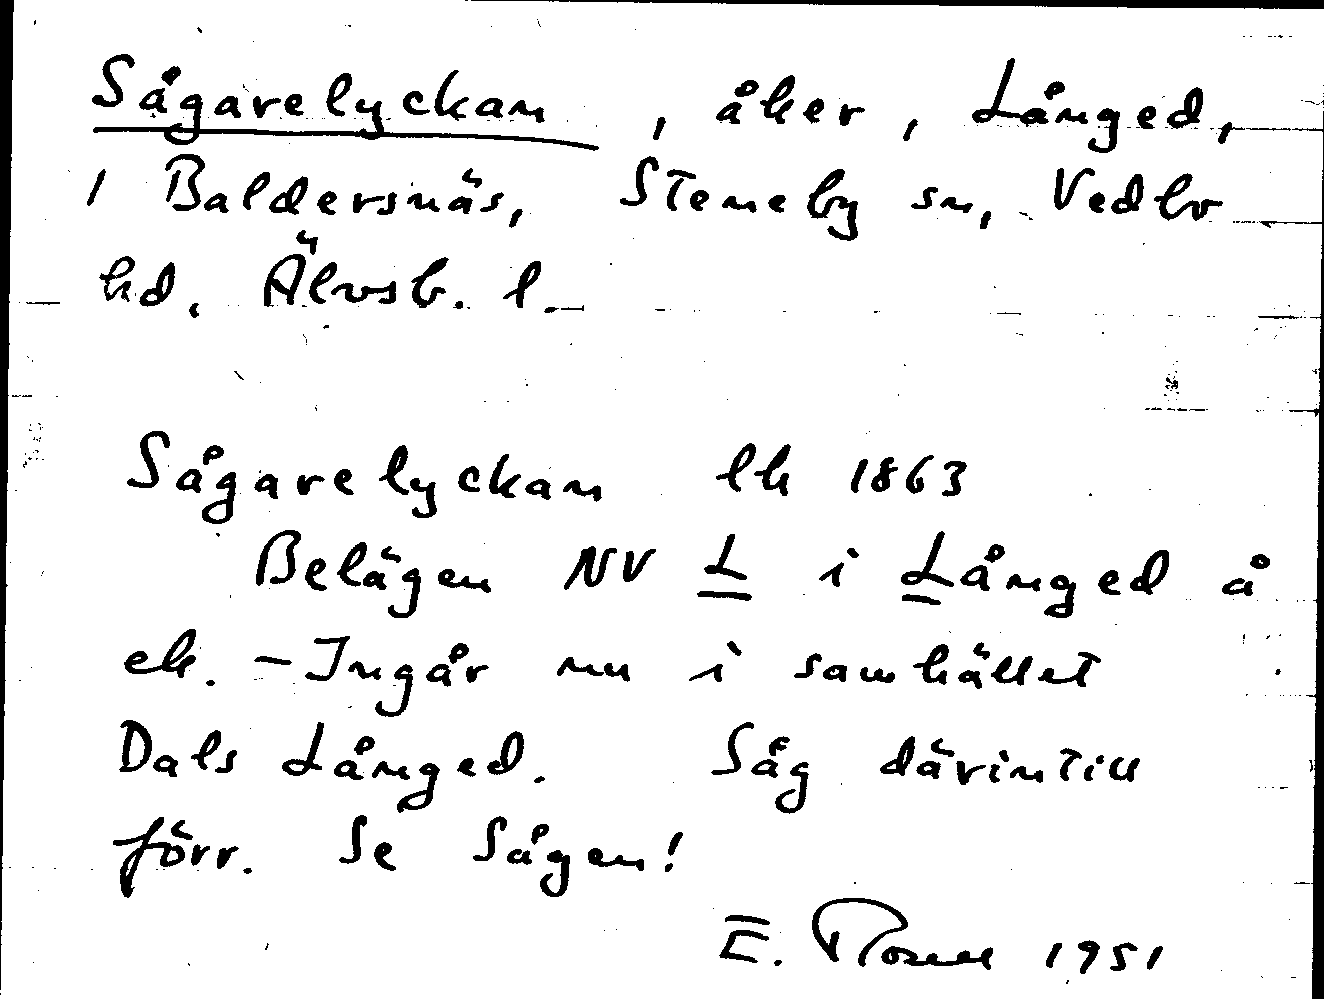 Sågarelyckan, åker, Långed,
1 Baldersnäs, Steneby sn, Vedbo
hd. Älvsb. l.
Sågarelyckan lk 1863
Belägen NV L i Långed å
ek. - Ingår nu i samhället
Dals Långed. Såg därintill
förr. Se Sågen!
E. 1951